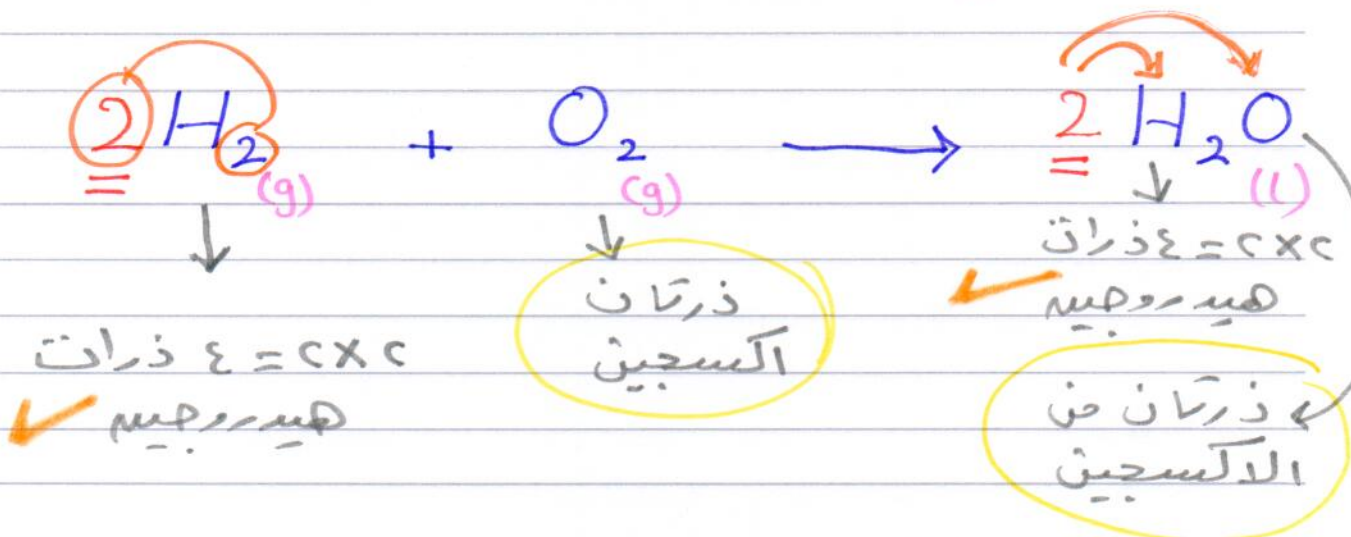 2H₂(g) + O₂(g) → 2H₂O(l)
٢×٢ = ٤ ذرات
هيدروجين
ذرتان
اكسجين
٢×٢ = ٤ ذرات
هيدروجين
ذرتان من
الاكسجين